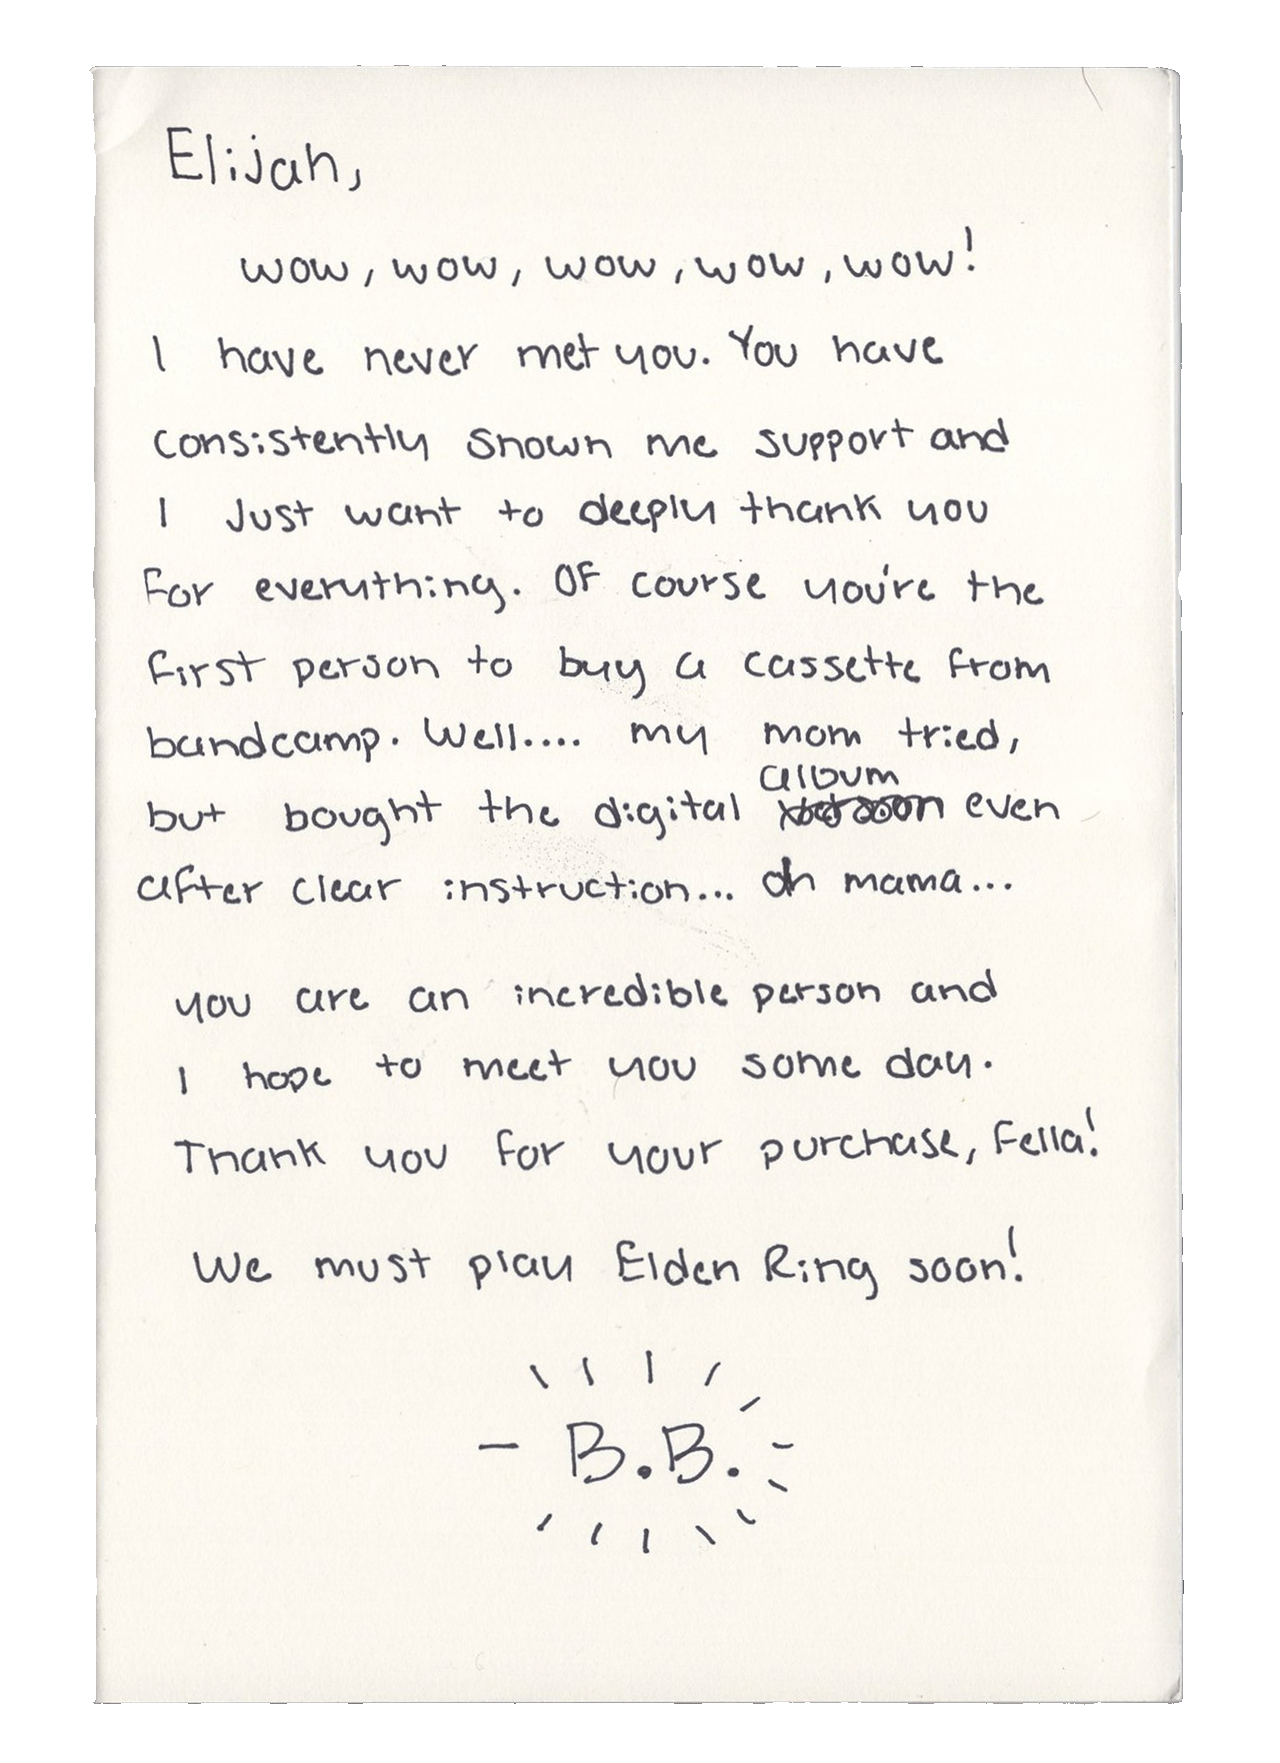 Elijah,
wow, wow, wow, wow, wow!
I have never met you. You have
consistently shown me support and
I Just want to deeply thank you
for everything. Of course you're the
first person to buy a cassette from
bandcamp. Well.... my mom tried,
album
but bought the digital even
after clear instruction... oh mama...
you are an incredible person and
I hope to meet you some day.
Thank you for your purchase, Fella!
We must play Elden Ring soon!
- B.B.